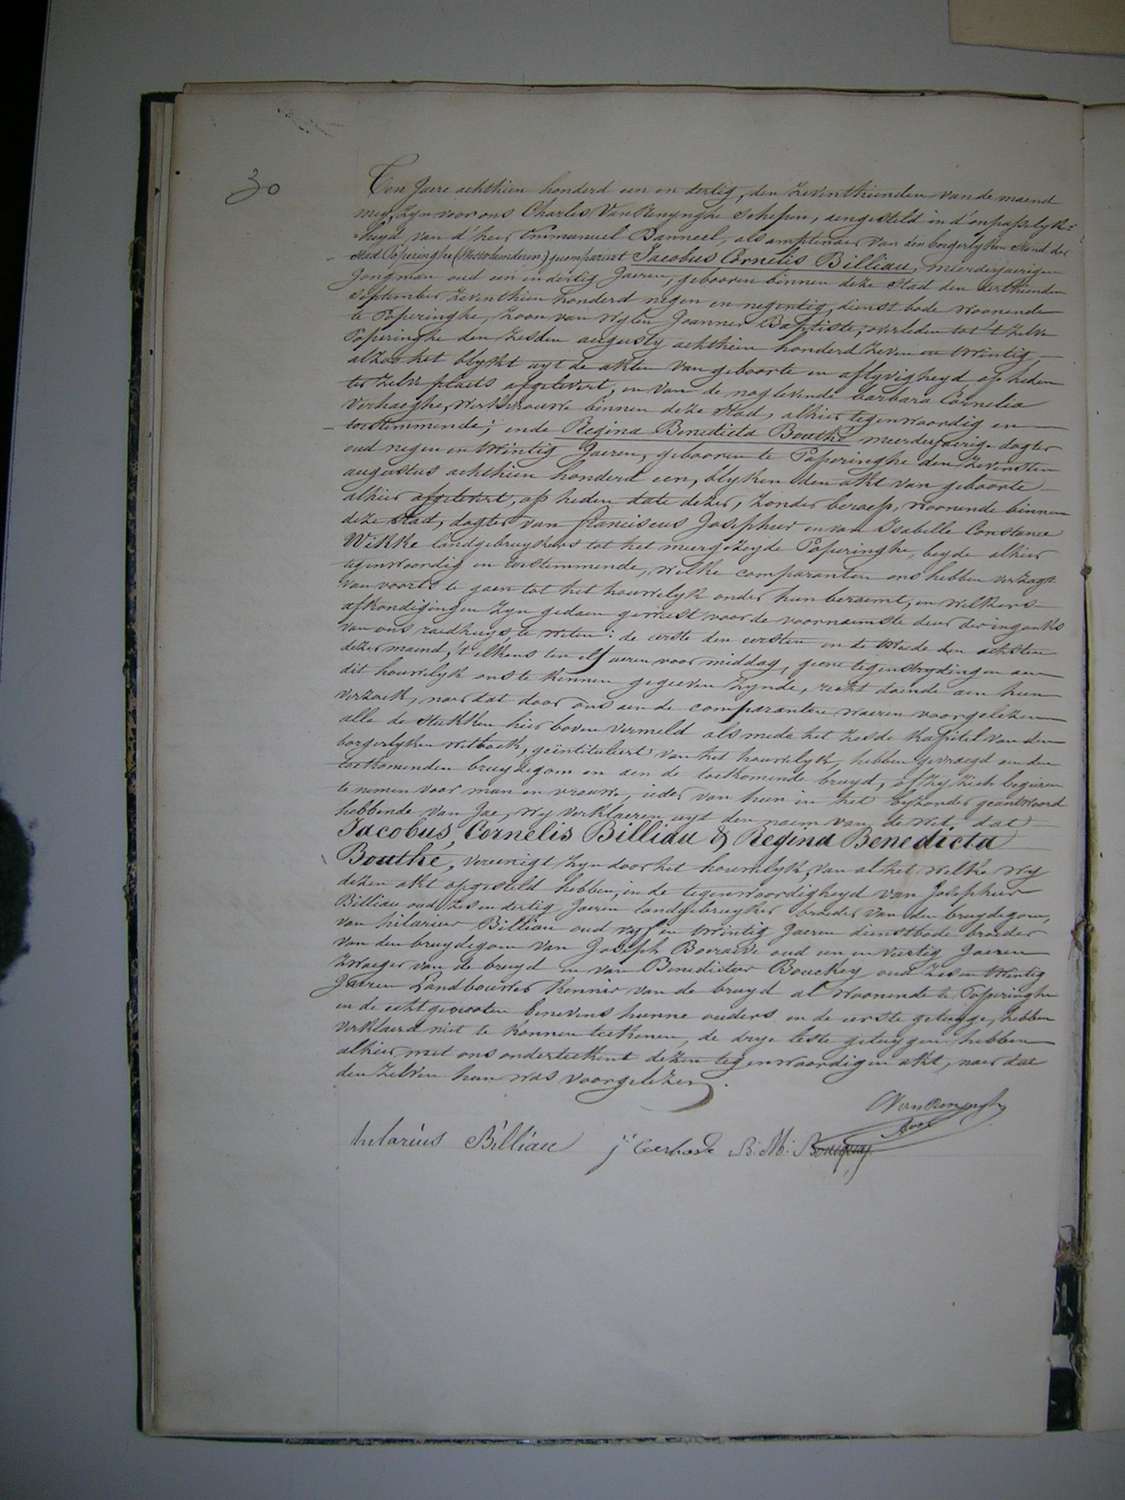 30
Ten Jaere achthien honderd een en dertig, den Zeventhienden van de maend
mey, Zyn voor ons Charles Van Renynghe Schepen, aengesteld in d'onpasselyk-
heyd van d'heer Emmanuel Banneel, als amptenaer van den borgerlyken Stand der
Stad Poperinghe (Westvlanderen) gecompareert Jacobus Cornelis Billiau, meerderjaerigen
Jongman oud een en dertig Jaeren, gebooren binnen deze Stad den derthienden
September Zeventhien honderd negen en negentig, dienst bode Woonende
te Poperinghe, Zoon van Wylen Joannes Baptiste, overleden tot 't Zelve
Poperinghe den Zesden augusty achthien honderd Zeven en twintig,
alzoo het blykt uyt de akten van geboorte en aflyvigheyd op heden
ter Zelve plaets afgelevert, en van de naglevende barbara Cornelia
Verhaeghe, Werkvrouwe binnen deze Stad, alhier tegenwoordig en
toestemmende; ende Regina Benedicta Bouthé meerderjaerige dogter
oud negen en twintig Jaeren, gebooren te Poperinghe den Zevensten
augustus achthien honderd een, blyken den akt van geboorte
alhier afgelevert, op heden date dezer, Zonder beroep, Woonende binnen
deze Stad, dogter van franciscus Josephus en van Isabelle Constance
Wikke landgebruykers tot het meergezeyde Poperinghe, beyde alhier
tegenwoordig en toestemmende, Welke comparanten ons hebben verzogt
van voorts te gaen tot het houwelyk onder hun beraemt, en Welkers
afkondigingen Zyn gedaen geweest voor de voornaemste deur der ingangs
van ons raedhuys, te weten: de eerste den eersten en de twede den achtsten
dezer maend, 't elkens ten elf ueren voor middag, geene tegenstrydingen aen
dit houwelyk ons te kennen gegeeven Zynde, recht doende aen hun
verzoek, naer dat door ons aen de comparanten waeren voorgelezen
alle de stukken hier boven vermeld als mede het Zesde kapitel van den
borgerlyken wetboek, geïntituleert van het houwelyk, hebben gevraegd aen den
toekomenden bruydegom en aen de toekomende bruyd, of Zy Zich begeeren
te nemen voor man en vrouwe, ieder van hun in het byzonder geantwoord
hebbende van Jae, Wy verklaeren uyt den naem van de Wet, dat
Jacobus, Cornelis Billiau & Regina Benedicta
Bouthé, vereenigt Zyn door het houwelyk, Van al het Welke Wy
dezen akt opgesteld hebben, in de tegenwoordigheyd van Josephus
Billiau oud Zes en dertig Jaeren landgebruyker broeder van den bruydegom,
van hilarius Billiau oud vyf en twintig Jaeren dienstbode broeder
van den bruydegom van Joseph oud een en veertig Jaeren
Zwaeger van de bruyd en van Benedictus Bouckey oud Zes en twintig
Jaeren Landbouwer kennis van de bruyd al Woonende te Poperinghe
en de echtgenooten benevens hunne ouders en de eerste getuyge, hebben
verklaerd niet te konnen teekenen, de drye leste getuygen hebben
alhier met ons onderteekent dezen tegenwoordigen akt, naer dat
den Zelven hun was voorgelezen.
C Van Renynghe
hilarius Billiau B: M: